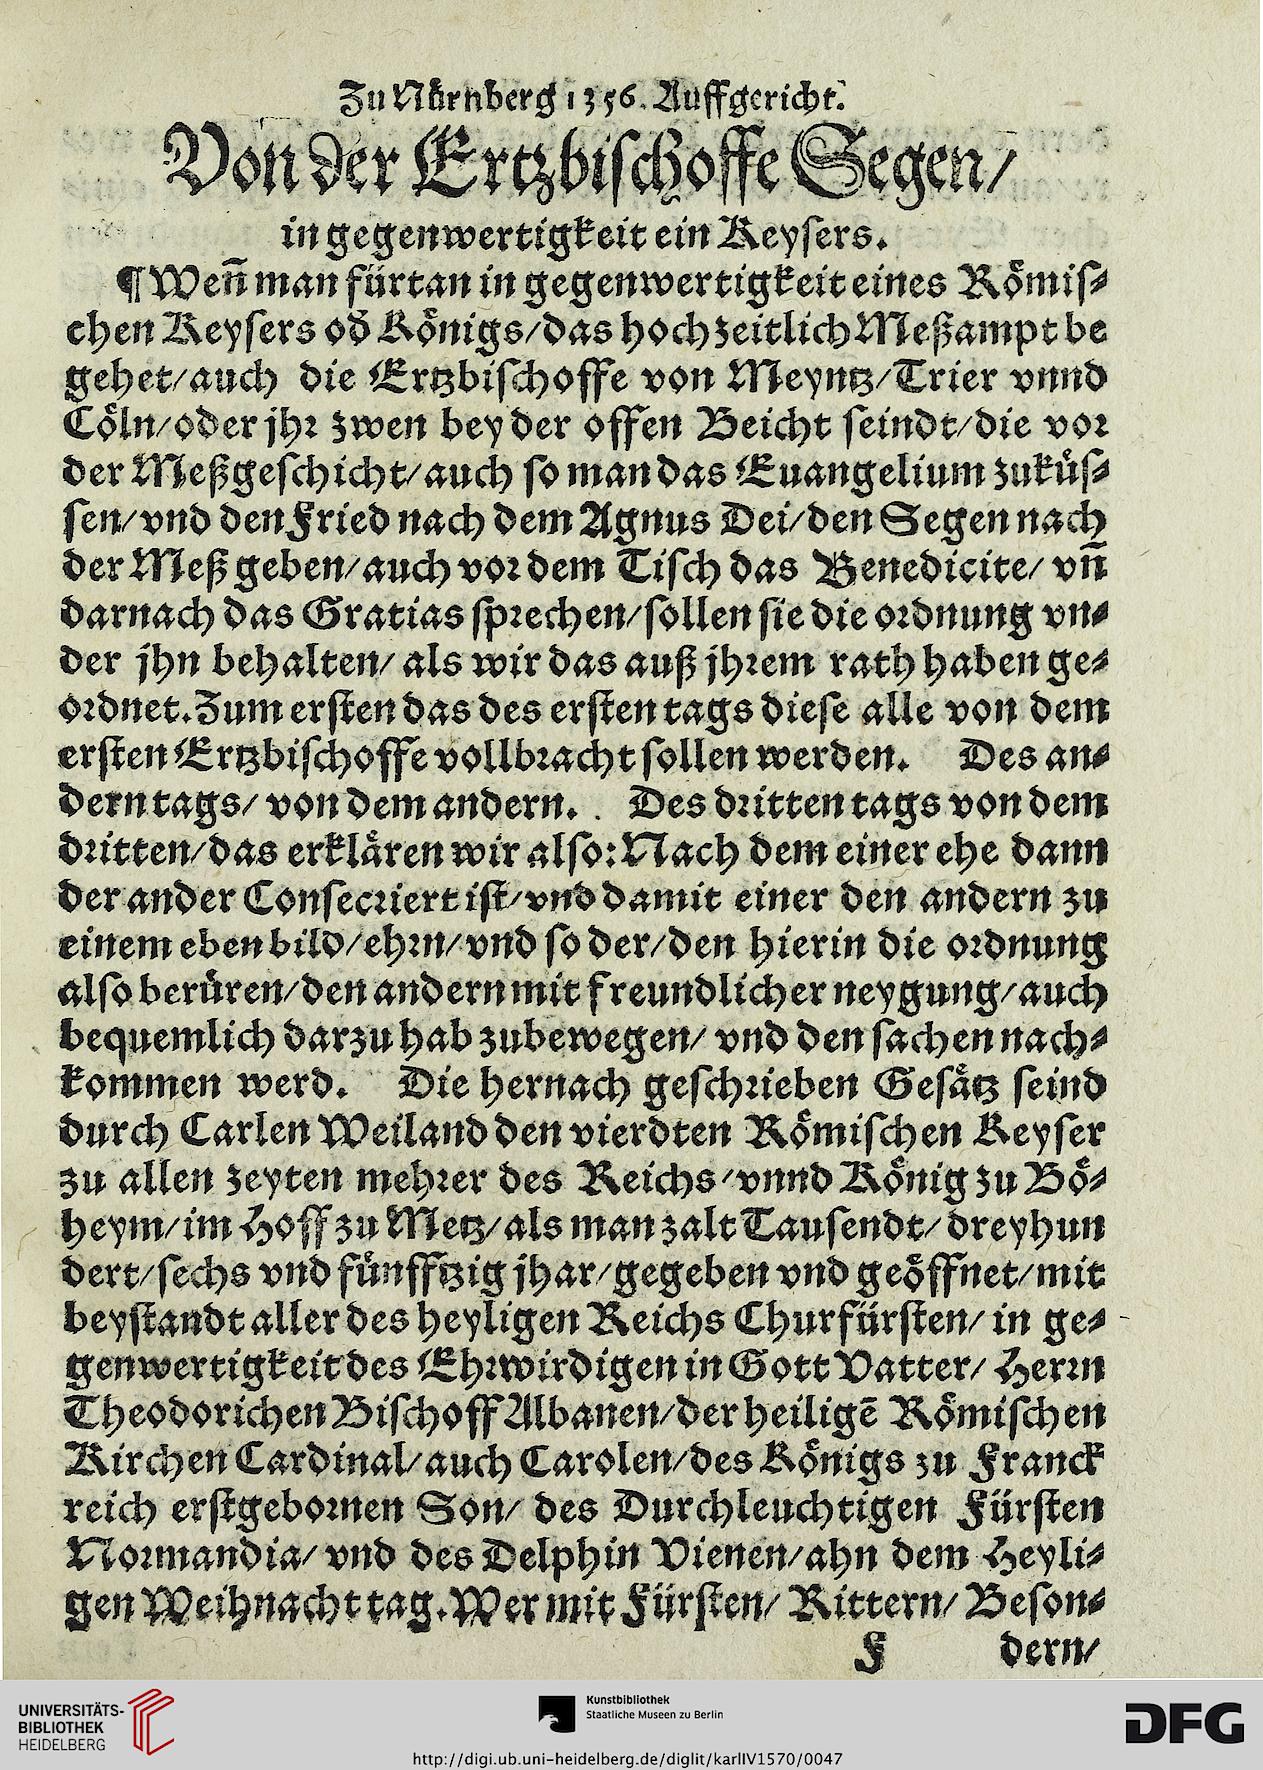 Zu Nürnberg 1356. Auffgericht.
Von der Ertzbischoffe Segen/
in gegenwertigkeit ein Keysers.
¶ Weñ man fürtan in gegenwertigkeit eines Römis⸗
chen Keysers od̃ Königs/das hochzeitlich Meßampt be
gehet/auch die Ertzbischoffe von Meyntz/Trier vnnd
Cöln/oder jhr zwen bey der offen Beicht seindt/die vor
der Meßgeschicht/auch so man das Euangelium zuküs⸗
sen/vnd den Fried nach dem Agnus Dei/den Segen nach
der Meß geben/auch vor dem Tisch das Benedicite/ vñ
darnach das Gratias sprechen/sollen sie die ordnung vn⸗
der jhn behalten/ als wir das auß jhrem rath haben ge⸗
ordnet. Zum ersten das des ersten tags diese alle von dem
ersten Ertzbischoffe vollbracht sollen werden. Des an⸗
dern tags/ von dem andern. . Des dritten tags von dem
dritten/das erklären wir also: Nach dem einer ehe dann
der ander Consecriert ist/vnd damit einer den andern zu
einem ebenbild/ehrn/vnd so der/den hierin die ordnung
also berüren/den andern mit freundlicher neygung/auch
bequemlich darzu hab zubewegen/ vnd den sachen nach⸗
kommen werd. Die hernach geschrieben Gesätz seind
durch Carlen Weiland den vierdten Römischen Keyser
zu allen zeyten mehrer des Reichs/vnnd König zu Bö⸗
heym/im Hoff zu Metz/als man zalt Tausendt/ dreyhun
dert/sechs vnd fünfftzig jhar/gegeben vnd geöffnet/mit
beystandt aller des heyligen Reichs Churfürsten/ in ge⸗
genwertigkeit des Ehrwirdigen in Gott Vatter/ Herrn
Theodorichen Bischoff Albanen/der heiligẽ Römischen
Kirchen Cardinal/auch Carolen/des Königs zu Franck
reich erstgebornen Son/ des Durchleuchtigen Fürsten
Normandia/ vnd des Delphin Vienen/ahn dem Heyli⸗
gen Weihnacht tag. Wer mit Fürsten/ Rittern/ Beson⸗
F dern/
UNIVERSITÄTS-
BIBLIOTHEK
HEIDELBERG
Kunstbibliothek
Staatliche Museen zu Berlin
DFG
http://digi.ub.uni-heidelberg.de/diglit/karlIV1570/0047